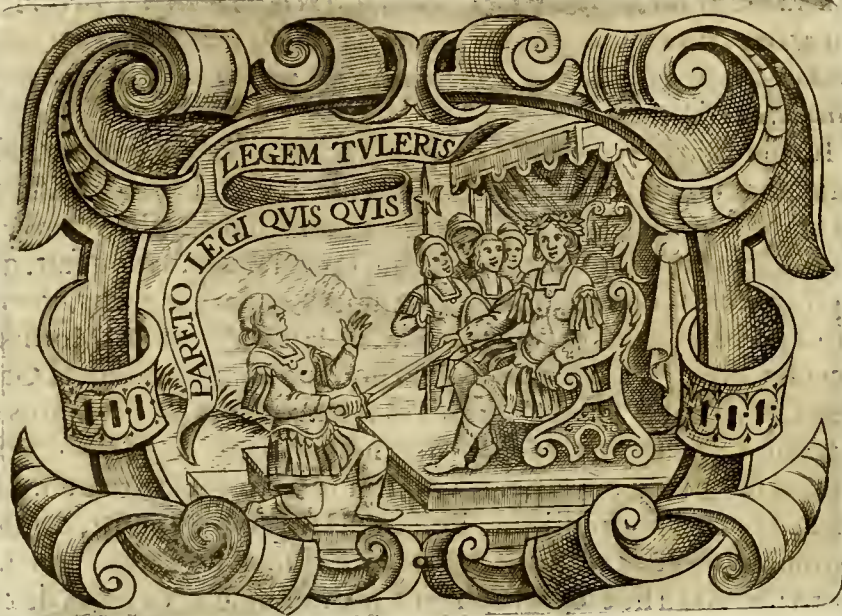 PARETO LEGI QVIS QVIS
LEGEM TVLERIS